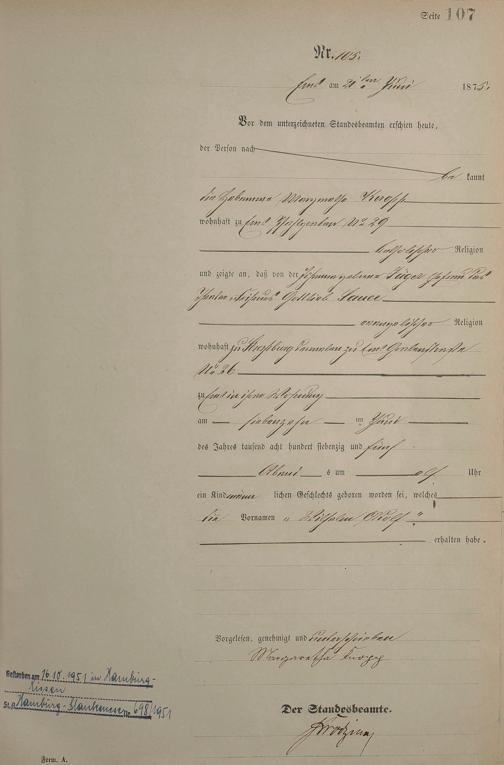 Seite 107
Nr. 105.
Ems am 21ten Juni 1875.
Vor dem unterzeichneten Standesbeamten erschien heute,
der Person nach
be kannt
die Hebamme Margaretha Knopp
wohnhaft zu Ems No 29
katholischer Religion
und zeigte an, daß von der Johanna geborne
Gottlieb
evangelischer Religion
wohnhaft zu zu Ems
No 26
zu Ems in ihrer Wohnung
am siebenzehn ten Juni
des Jahres tausend acht hundert siebenzig und fünf
Abend s um elf Uhr
ein Kind männ lichen Geschlechts geboren worden sei, welches
die Vornamen „Wilhelm Adolf“
erhalten habe.
Vorgelesen, genehmigt und unterschrieben
Margaretha Knopp
Der Standesbeamte.
Gestorben am 16.10.1951 in Hamburg-
Rissen
St.A. Hamburg-Blankenese Nr. 698/1951
Form. A.